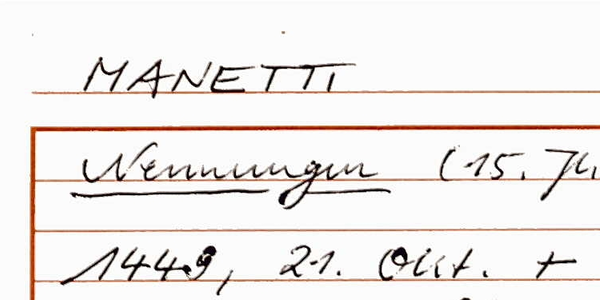 MANETTI
Nennungen (15. Jh.
1449, 21. Okt. +